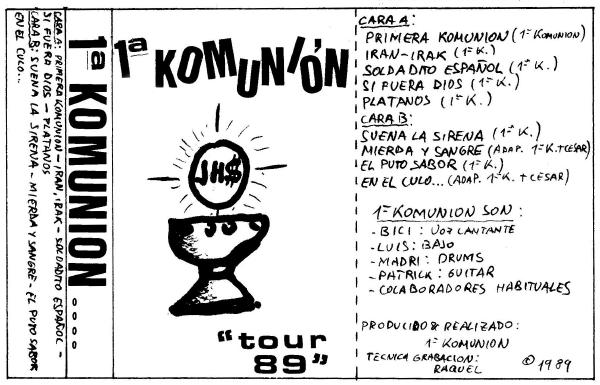 CARA A: PRIMERA KOMUNION - IRAN-IRAK - SOLDADITO ESPAÑOL -
SI FUERA DIOS - PLATANOS
CARA B: SUENA LA SIRENA - MIERDA Y SANGRE - EL PUTO SABOR
EN EL CULO...
1ª KOMUNION
1ª KOMUNIÓN
JH$
"tour
89"
CARA A:
PRIMERA KOMUNION (1ª KOMUNION)
IRAN-IRAK (1ª K.)
SOLDADITO ESPAÑOL (1ª K.)
SI FUERA DIOS (1ª K.)
PLATANOS (1ª K.)
CARA B:
SUENA LA SIRENA (1ª K.)
MIERDA Y SANGRE (ADAP. 1ª K. + CESAR)
EL PUTO SABOR (1ª K.)
EN EL CULO... (ADAP. 1ª K. + CESAR)
1ª KOMUNION SON:
- BICI: VOZ CANTANTE
- LUIS: BAJO
- MADRI: DRUMS
- PATRICK: GUITAR
- COLABORADORES HABITUALES
PRODUCIDO & REALIZADO:
1ª KOMUNION
TECNICA GRABACION:
RAQUEL
© 1989